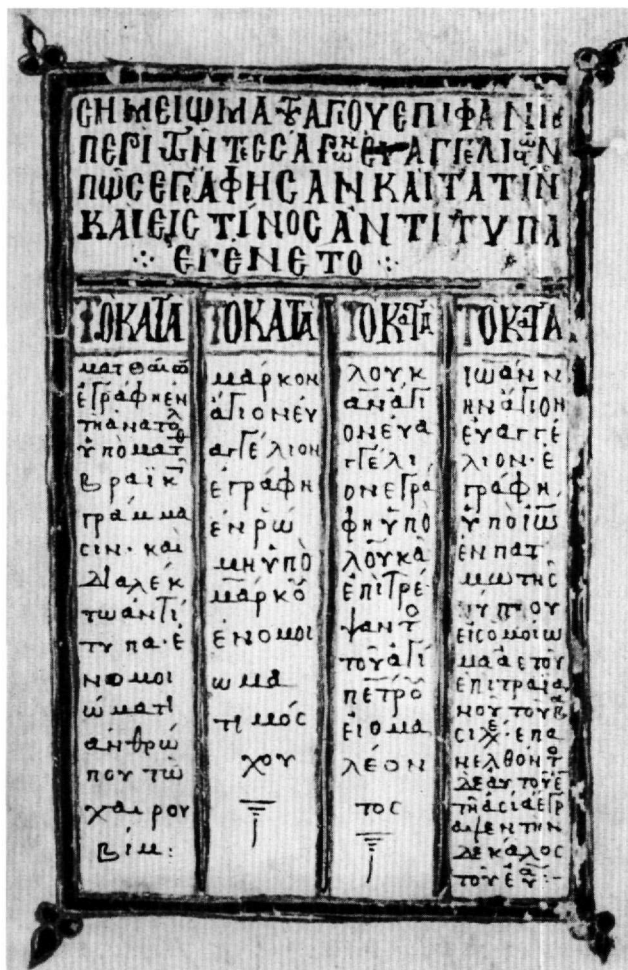 СΗΜΕΙΩΜΑ ΤΟΥ ΑΓΙΟΥ ΕΠΙΦΑΝΙΟΥ
ΠΕΡΙ ΤΩΝ ΤΕССΑΡΩΝ ΕΥΑΓΓΕΛΙΩΝ
ΠΩС ΕΓΡΑΦΗСΑΝ ΚΑΙ ΤΑ ΤΙΝ
ΚΑΙ ΕΙС ΤΙΝΟС ΑΝΤΙΤΥΠΑ
ΕΓΕΝΕΤΟ
ΤΟ ΚΑΤΑ
ματθαῖ
ἐγράφη ἐν
τῆ ἀνατολ
ὑπὸ ματθ
βραϊκ
γράμμα
σιν· και
διαλέκ
τω ἀντί
τυπα· ἐ
νομοι
ώματι
ἀνθρώ
που τῶ
χαιρου
βίμ:
ΤΟ ΚΑΤΑ
μάρκον
ἅγιον ἐυ
αγγέλιον
ἐγράφη
ἐν ρώ
μη ὑπὸ
μάρκο
ἐν ομοι
ωμα
τι μόσ
χου
ΤΟ ΚΑΤΑ
λουκ
αν ἅγι
ον ἐυα
γγέλι
ον εγρα
φη ὑπο
λουκὰ
ἐπιτρέ
ψαντο
τοῦ ἁγί
πέτρο
εἰ ομα
λέον
τος
ΤΟ ΚΑΤΑ
ιωάνν
ην ἅγιον
εὐαγγέ
λιον· ε
γράφη
ὑπὸ ἰω
ἐν πατ
μω της
εἰς ομοίω
μα ἀετοῦ
ἐπι τραϊα
νοῦ τοῦ β
σιλε· επα
νελθόντο
τη ασια ἐγρ
αψεν την
δε κάλος
του ευ: